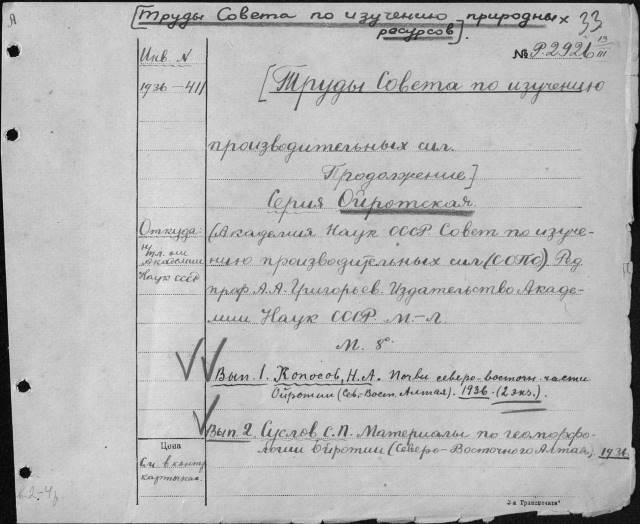 [Труды Совета по изучению природных
ресурсов].
33
№ Р.2921 13/III
Инв. N
1936 — 411
[Труды Совета по изучению
производительных сил.
Продолжение]
Серия Ойротская.
Откуда:
Академии
Наук СССР
(Академия Наук СССР Совет по изуче-
нию производительных сил (СОПС). Ред.
проф. А.А. Григорьев. Издательство Акаде-
мии Наук СССР. М.-Л.
М. 8°.
Вып. 1. Копосов, Н.А. Почвы северо-восточн. части
Ойротии (Сев.-Вост. Алтая). 1936. (2 экз.).
Вып. 2. Суслов С.П. Материалы по геоморфо-
логии Ойротии (Северо-Восточного Алтая). 1936.
Цена
См. в контр.
картычках.